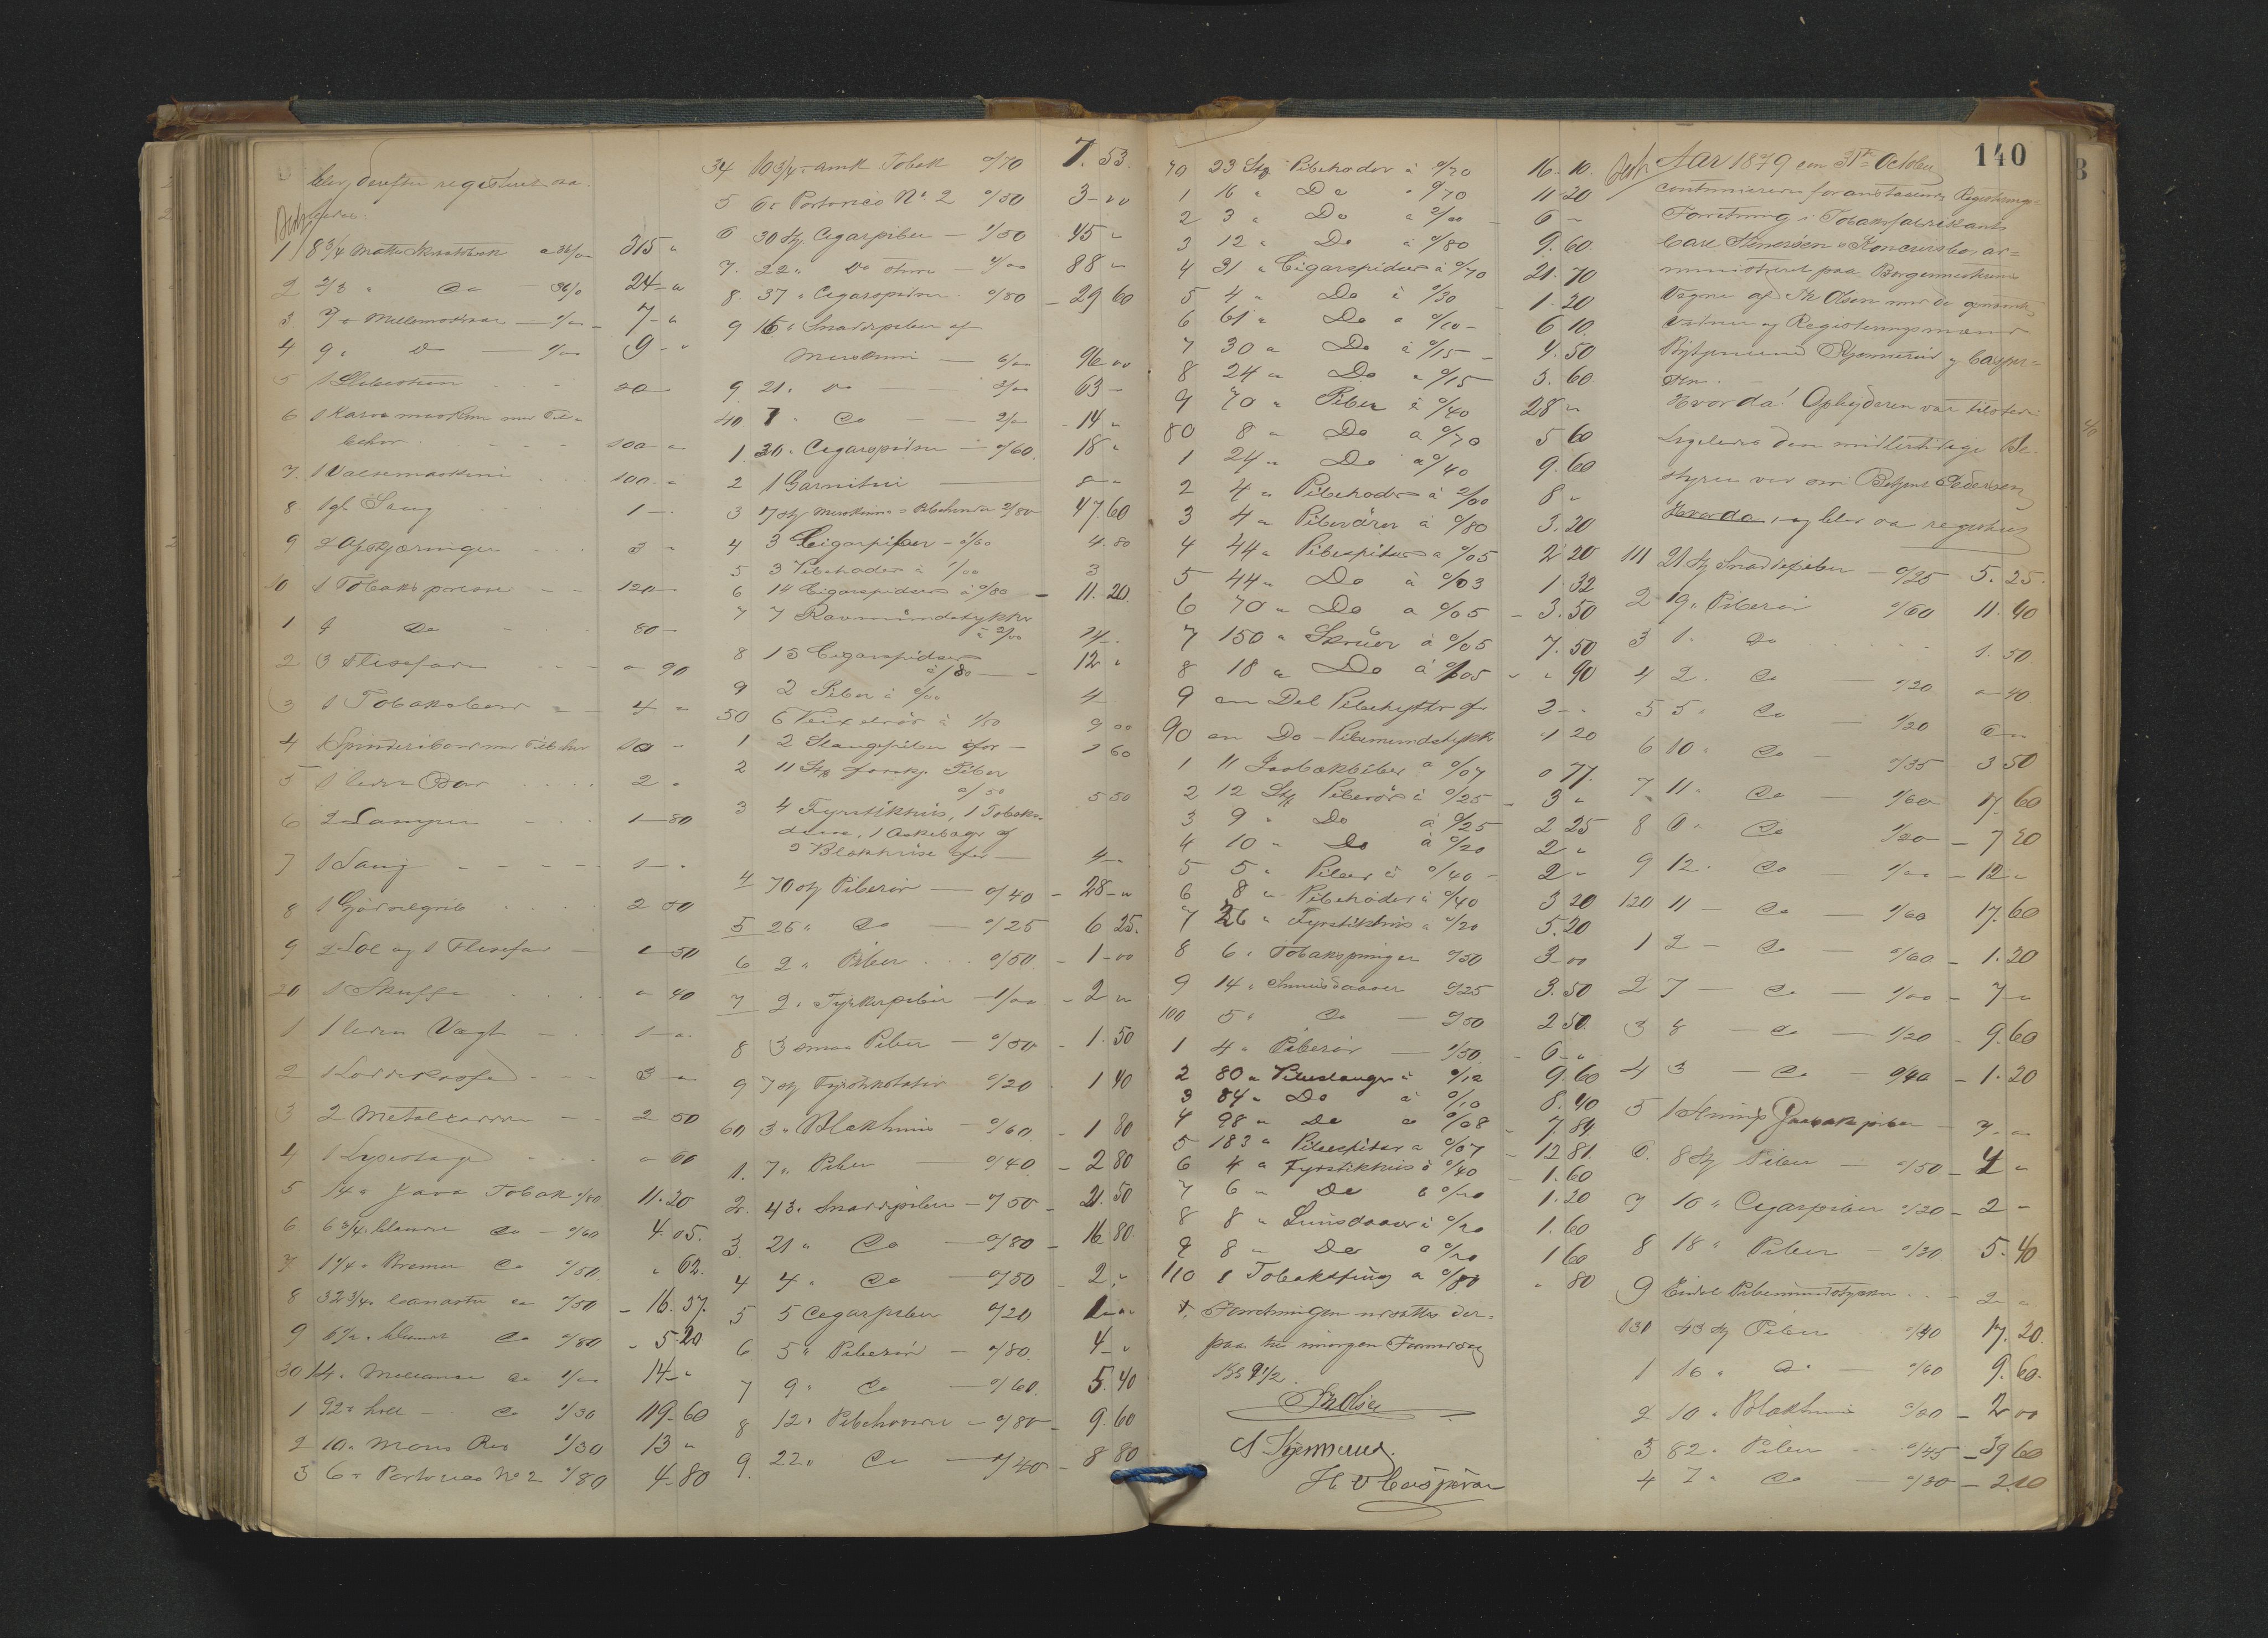 blev derefter registeret saa-
ledes:
1 8 3/4 Matter Skraatobak a 36/00 315 "
2 2/3 " Do - 36/0 24 - "
3 7 " Mellemm - 1/00 - 7 - "
4 9 " Do - 1/00 9 - "
5 1 Slibesteen 20 -
6 1 Karvemaskine med Til-
behør 100 - "
7. 1 Valsemaskine 100 - "
8 1 gl. Saug 1 - .
9 2 Afskjæringer 3 -
10 1 Tobaks presse 120 -
1 4 Do 80 -
2 3 Flisefade " 90
3 1 Tobaksbord 4 "
4 1 Spinderibord med Tilbehør 10 -
5 1 liden Bor 2 "
6 2 Lamper 1 - 80
7 1 Saug 1 - .
8 1 2 50
9 2 og 1 Flisefad 1 - 50
20 1 Skuffe " 40
1 1 liden Vægt 1 - "
2 1 Loddekasse 3 - "
3 2 Metal 2 50
4 1 Lysestage " 60
5 14 " Java Tobak 0/80 11.20
6 6 3/4 " Do - 0/60 4.05.
7 1 1/4 " Bremer Do 0/50 " 62.
8 32 3/4 " Canaster Do 0/50 - 16.37.
9 6 1/2 " Do 0/80 - 5.20
30 14 " Do 1/00 14 - "
1 92 " holl - Do 1/30 119.60
2 10 " 1/30 13 "
3 6 " Portorico No 2 0/80 4.80
34 10 3/4 " amk. Tobak 0/70 7.53.
5 6 " Portorico No. 2 0/50 3 - 00
6 30 St Cigarpiber - 1/50 45 "
7. 22 " Do store - 4/00 88 "
8. 37 " Cigarspidser 0/80 - 29 60
9 16 " Snaddepiber af
Merskum - 6/00 96 00
9 21 " Do - 3/00 63 -
40 7 " Do - 2/00 - 14 "
1. 30 " Cigarspidser - 0/60. 18 "
2 1 Garnitur - 8 - "
3 17 St Merskums = Pibehoveder 2/80 47.60
4 3 Cigarpiber - 1/60 4.80
5 3 Pibehoder à 1/00 3
6 14 Cigarspidser à 0/80 - 11.20.
7 7 Ravmundstykker
à 2/00 14 - .
8 15 Cigarspidser
à 0/80 - 12 "
9 2 Piber à 2/00 4 -
50 6 Veixelrør à 1/50 9 00
1 2 Slangepiber for - 1 60
2 11 Stk forskj. Piber
0/50 5 50
3 4 Fyrstikhuis, 1 Tobaks-
daase, 1 Askebæger og
2 Blokhuse for - 4 - "
4 70 St Piberør - 0/40 - 28 - "
5 25 " Do - 0/25 6 25.
6 2 " Piber 0/50 - 1 - 00
7 2 " Tyrkerpiber - 1/00 - 2 "
8 3 smaa Piber - 0/50 - 1.50
9 7 St Fyrstikstativ 0/20 1 40
60 3 " Blokhuise - 0/60 - 1 80
1. 7 " Piber - 0/40 - 2 80
2. 43 " Snaddepiber - 0/50 - 21.50
3. 21 " Do - 0/80 - 16 80.
4 4 " Do - 0/50 - 2. "
5 5 Cigarpiber 0/20 1 - "
6 5 " Piberør - 0/80. 4 - "
7 9 " Do - 0/60. 5.40
8 12 " Pibehoveder - 0/80 - 9.60
9. 22 " Do - 0/40 - 8 80
70 23 Stk Pibehoder à 0/70 16.10.
1 16 " Do " 0/70 11 20
2 3 " Do à 2/00 - 6 -
3 12 " Do à 0/80 9.60.
4 31 " Cigarspidser à 0/70 21.70
5 4 " Do à 0/30 - 1.20
6 61 " Do a 0/10 - 6 10.
7 30 " Do à 0/15 - 4.50
8 24 " Do " 0/15 3.60
9 70 " Piber à 0/40 28 "
80 8 " Do a 0/70 5 60
1 24 " Do a 0/40 9.60
2 4 " Pibehoder à 2/00 8 "
3 4 " Piberører à 0/80 3.20
4 44 " Pibespidser a 0/05 2 20
5 44 " Do à 0/03 1 32
6 70 " Do a 0/05 - 3.50
7 150 " Skruer à 0/05 7.50
8 18 " Do à 0/05 - " 90
9 en Del Pibehytter for 2 - -
90 en Do - Pibemundstykk 1 20
1 11 Jaabakbiber a 0/07 0 77.
2 12 Stk Piberør à 0/25 - 3 "
3 9 " Do à 0/25 2 25
4 10 " Do à 0/20 2 "
5 5 " Piber à 0/40 - 2 "
6 8 " Pibehoder à 0/40 3 20
7 26 " Fyrstikhuis a 0/20 5.20
8 6 " Tobakspunger 0/50 3 00
9 14 " Snuusdaaser 0/25 3.50
100 5 " Do - 0/50 2 50.
1 4 " Piberør - 1/50 - 6 - "
2 80 " Pibeslanger à 0/12 9.60
3 84 " Do à 0/10 8.40
4 98 " Do a 0/08 - 7 84
5 183 " Pibespidser a 0/07 - 12 81.
6 4 " Fyrstikhuis à 0/40 - 1.60
7 6 " Do à 0/20 1.20
8 8 " Snusdaaser à 0/20 1.60
9 8 " Do a 0/20 1 60
110 1 Tobakspung a 0/80 " 80
Forretningen udsattes der-
paa til imorgen Formiddag
Kl 9 1/2.
Th Olsen
A Kjennerud.
H. O Caspersen
140
Aar 1879 den 31te October
continueredes foranstaaende Registrerings-
Forretning i Tobaksfabrikant
Carl Simonsen's Concursbo, ad-
ministreret paa Borgermesterens
Vegne af Th Olsen med de opnævnte
Vidner og Registreringsmænd
Bytjenerne Kjennerud og Casper-
sen.
Hvorda! Opbyderen var tilstede
Ligeledes den midlertidige Be-
styrer ved Betjent Pedersen
Hvorda, og blev saa registeret
111 21 St Snaddepiber - 0/25 5.25.
2 19 " Piberør 0/60 11.40
3 1 " Do 1.50
4 2 " Do - 0/20 " 40
5 5 " Do - 1/20 6 "
6 10 " Do - 0/35 3 50
7 11 " Do - 1/60 17.60
8 6 " Do 1/20 - 7 20
9 12 " Do - 1/00 - 12 "
120 11 - Do - 1/60 17.60
1 2 - Do - 0/60 - 1.20
2 7 - Do - 1/00 - 7 - "
3 8 - Do - 1/20 - 9.60
4 3 - Do - 0/40 - 1.20
5 1 Jaabakpiber - "
6. 8 St Piber - 0/50 - 4 "
7 10 " Cigarpiber 0/20 - 2 -
8 18 " Piber - 0/30 5.40
9 Endel Pibemundstykker 2 "
130 43 St Piber 0/40 17.20.
1 16 " Do - 0/60 9.60.
2 10 " Blokhuis 0/20 - 2 00
3 82 " Piber 0/45 - 39 60
4 7 " Do - 0/30 - 2.10